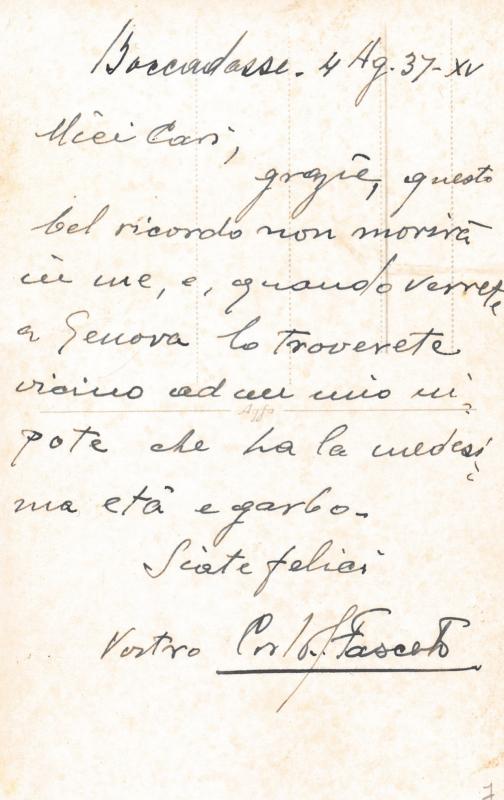 Boccadasse. 4 Ag. 37-XV
Miei Cari,
grazie, questo
bel ricordo non morirà
in me, e, quando verrete
a Genova lo troverete
vicino ad un mio ni-
pote che ha la medesi-
ma età e garbo.
Siate felici
Vostro
Agfa